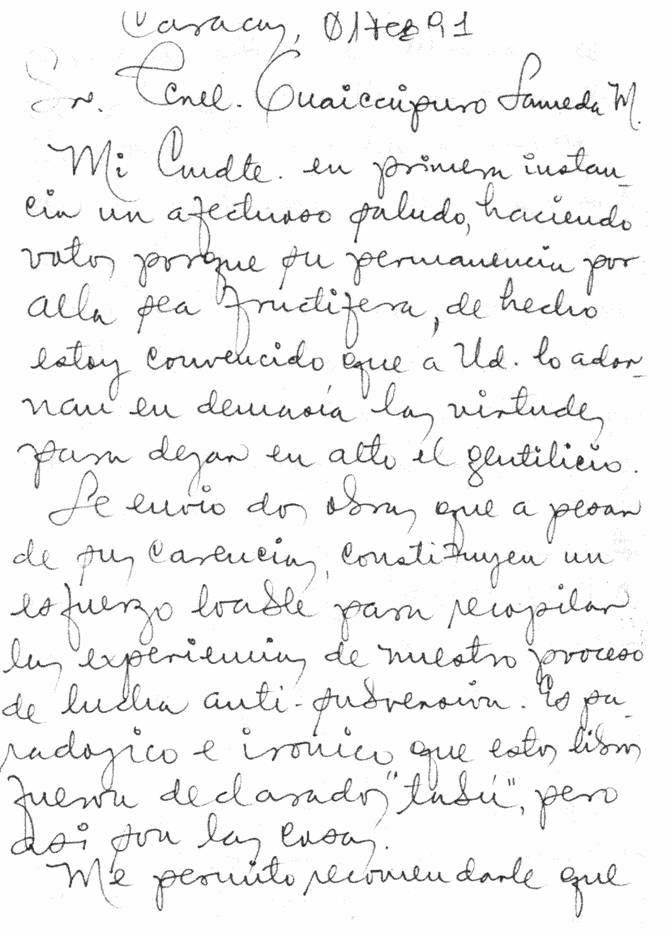 Caracas, 01Feb91
Sr. Tcnel. Guaicaipuro Lameda M.
Mi Cmdte. en primera instan-
cia un afectuoso saludo, haciendo
votos porque su permanencia por
alla sea fructifera, de hecho
estoy convencido que a Ud. lo ador-
nan en demasía las virtudes
para dejar en alto el gentilicio.
Le envio dos obras que a pesar
de sus carencias, constituyen un
esfuerzo loable para recopilar
las experiencias de nuestro proceso
de lucha anti-subversiva. Es pa-
radojico e irónico que estos libros
fueron declarados "tabú", pero
asi son las cosas.
Me permito recomendarle que